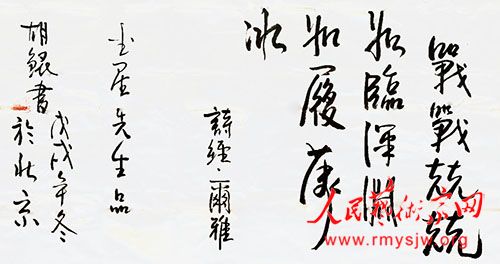 戰戰兢兢
如臨深淵
如履薄
冰
詩經·爾雅
星先生品
戊戌年冬
胡鯤書於北京
人民藝術家网
www.rmysjw.org